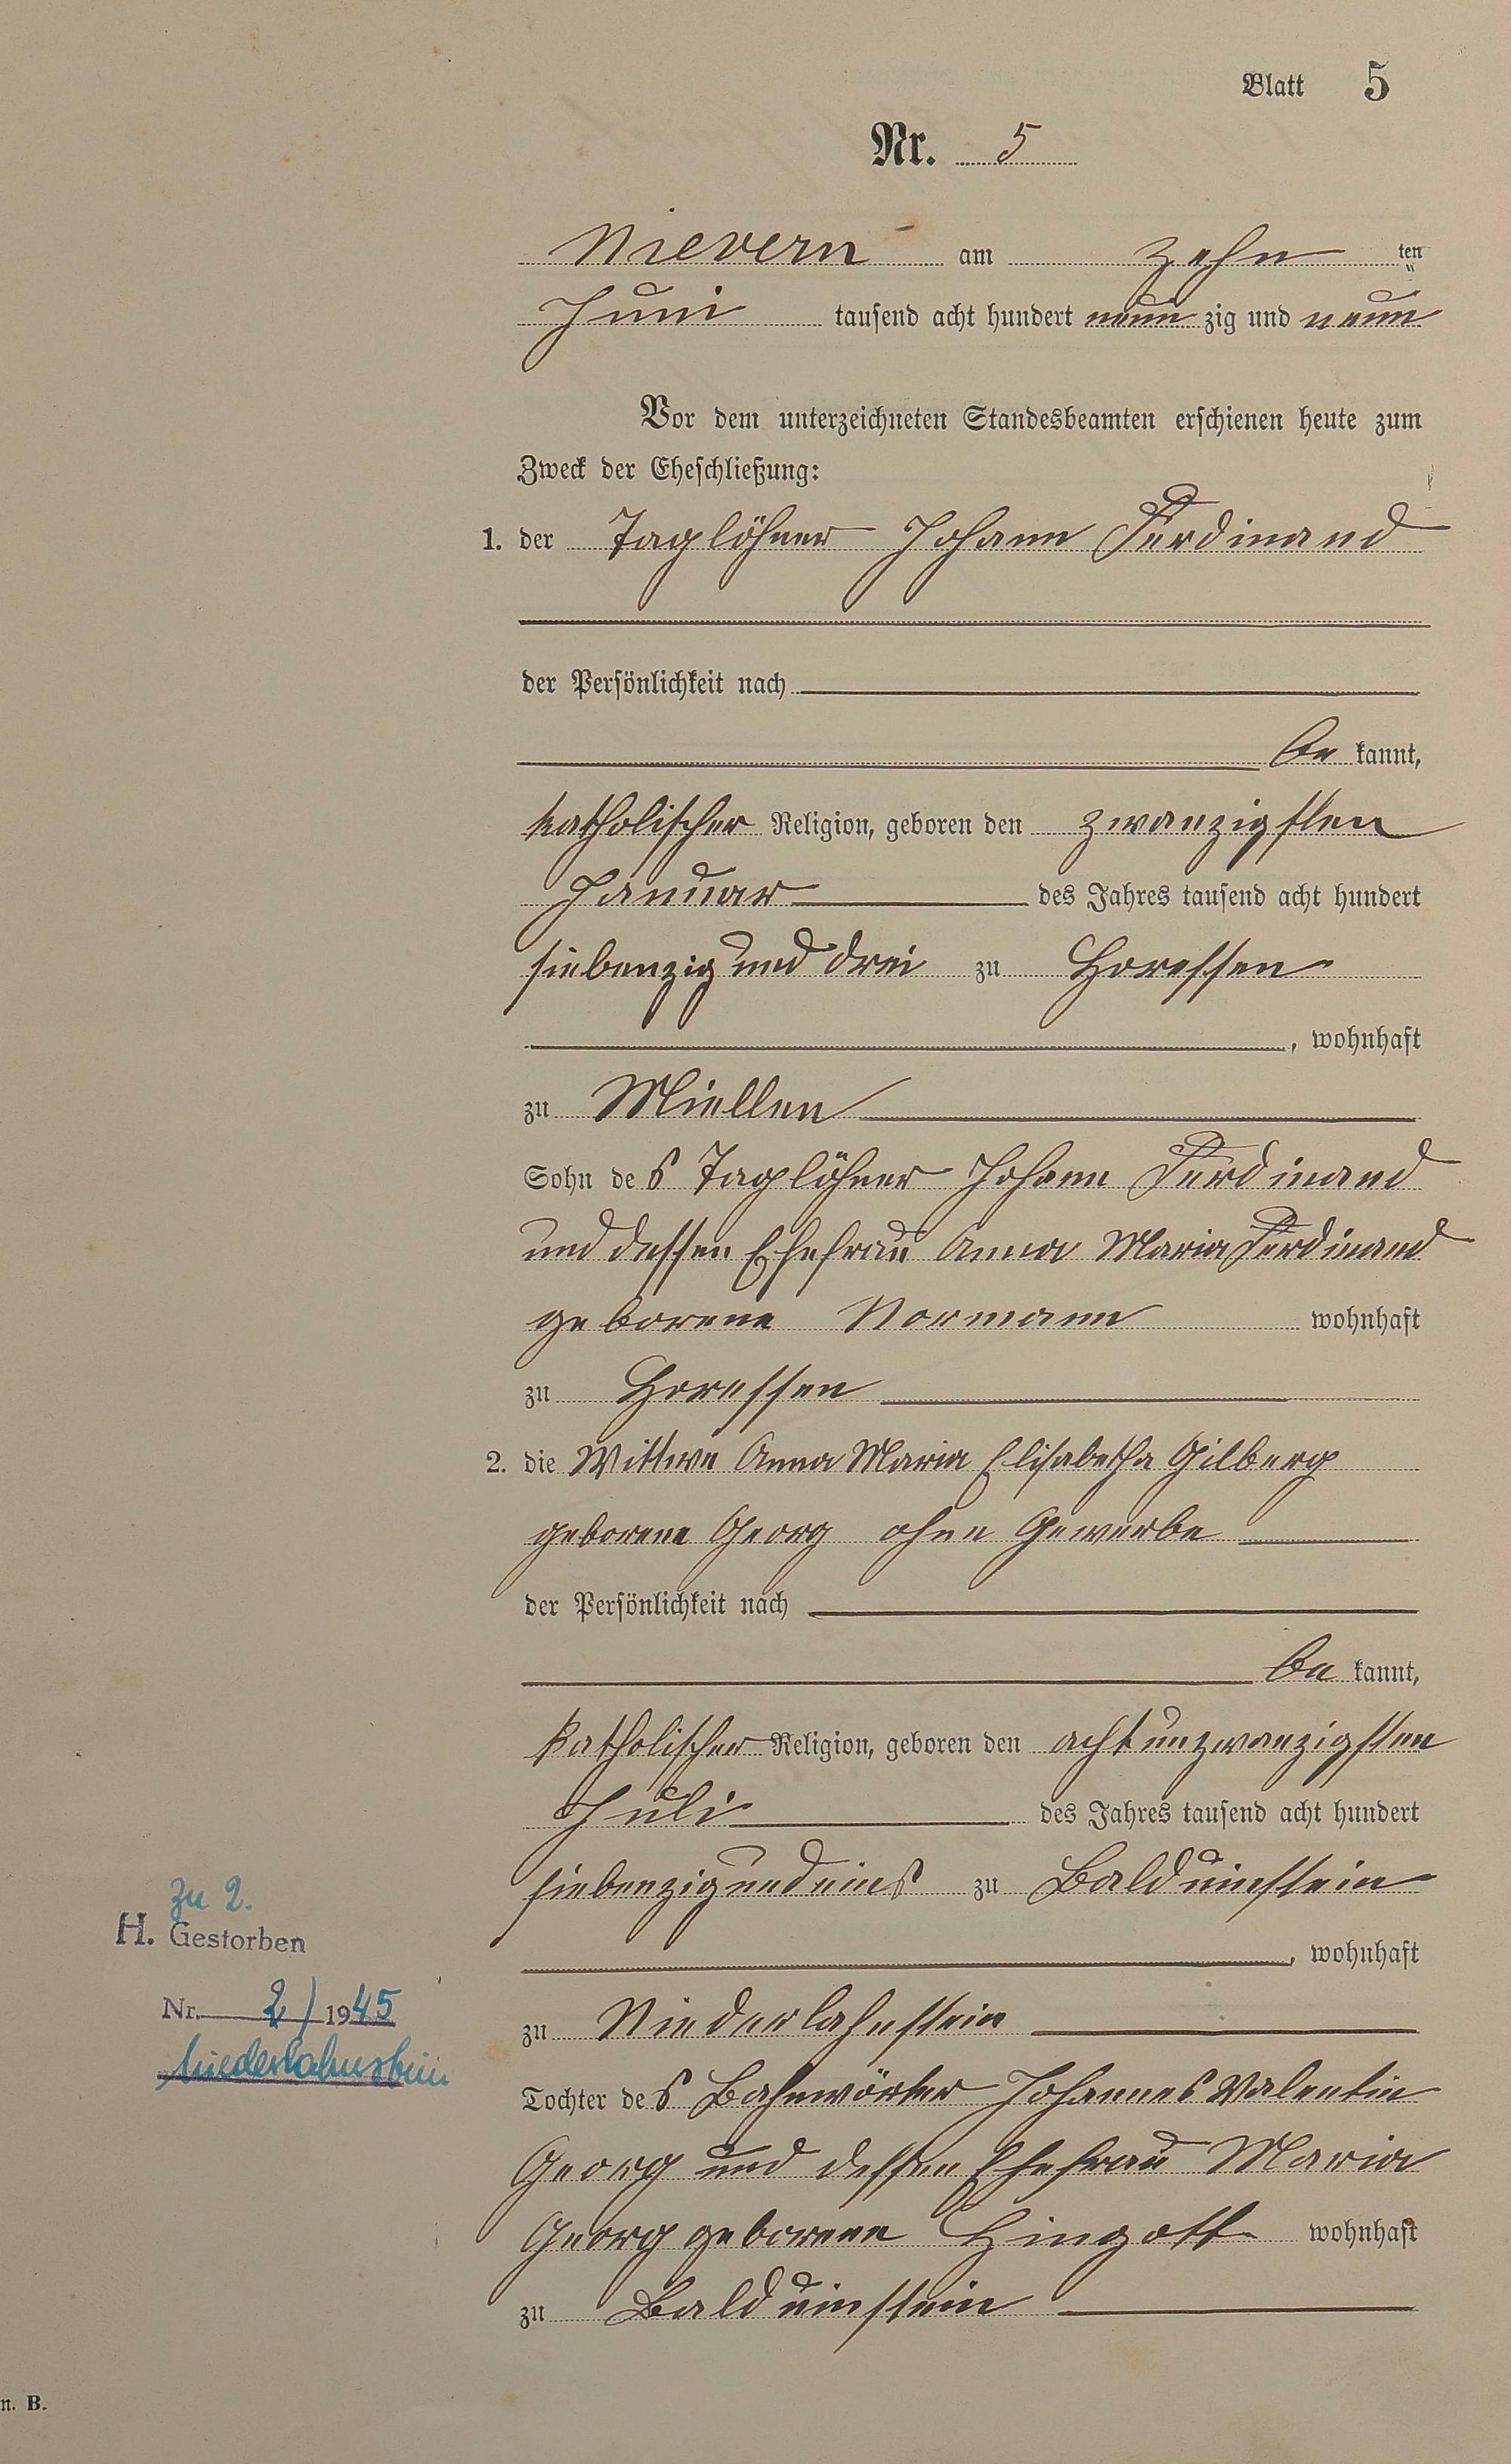 Blatt 5
Nr. 5
Nievern am zehn ten
Juni tausend acht hundert neun zig und neun
Vor dem unterzeichneten Standesbeamten erschienen heute zum
Zweck der Eheschließung:
1. der Taglöhner Johann Ferdinand
der Persönlichkeit nach
be kannt,
katholischer Religion, geboren den zwanzigsten
Januar des Jahres tausend acht hundert
siebenzig und drei zu Horessen
, wohnhaft
zu Miellen
Sohn des Taglöhner Johann Ferdinand
und dessen Ehefrau Anna Maria Ferdinand
geborene Normann wohnhaft
zu Horessen
2. die Wittwe Anna Maria Elisabetha Gilberg
geborene Georg ohne Gewerbe
der Persönlichkeit nach
be kannt,
katholischer Religion, geboren den achtunzwanzigsten
Juli des Jahres tausend acht hundert
siebenzig und eins zu Balduinstein
, wohnhaft
zu Niederlahnstein
Tochter des Bahnwörter Johannes Valentin
Georg und dessen Ehefrau Maria
Georg geborene Hingott wohnhaft
zu Balduinstein
zu 2.
H. Gestorben
Nr. 2/1945
Niederlahnstein
n. B.